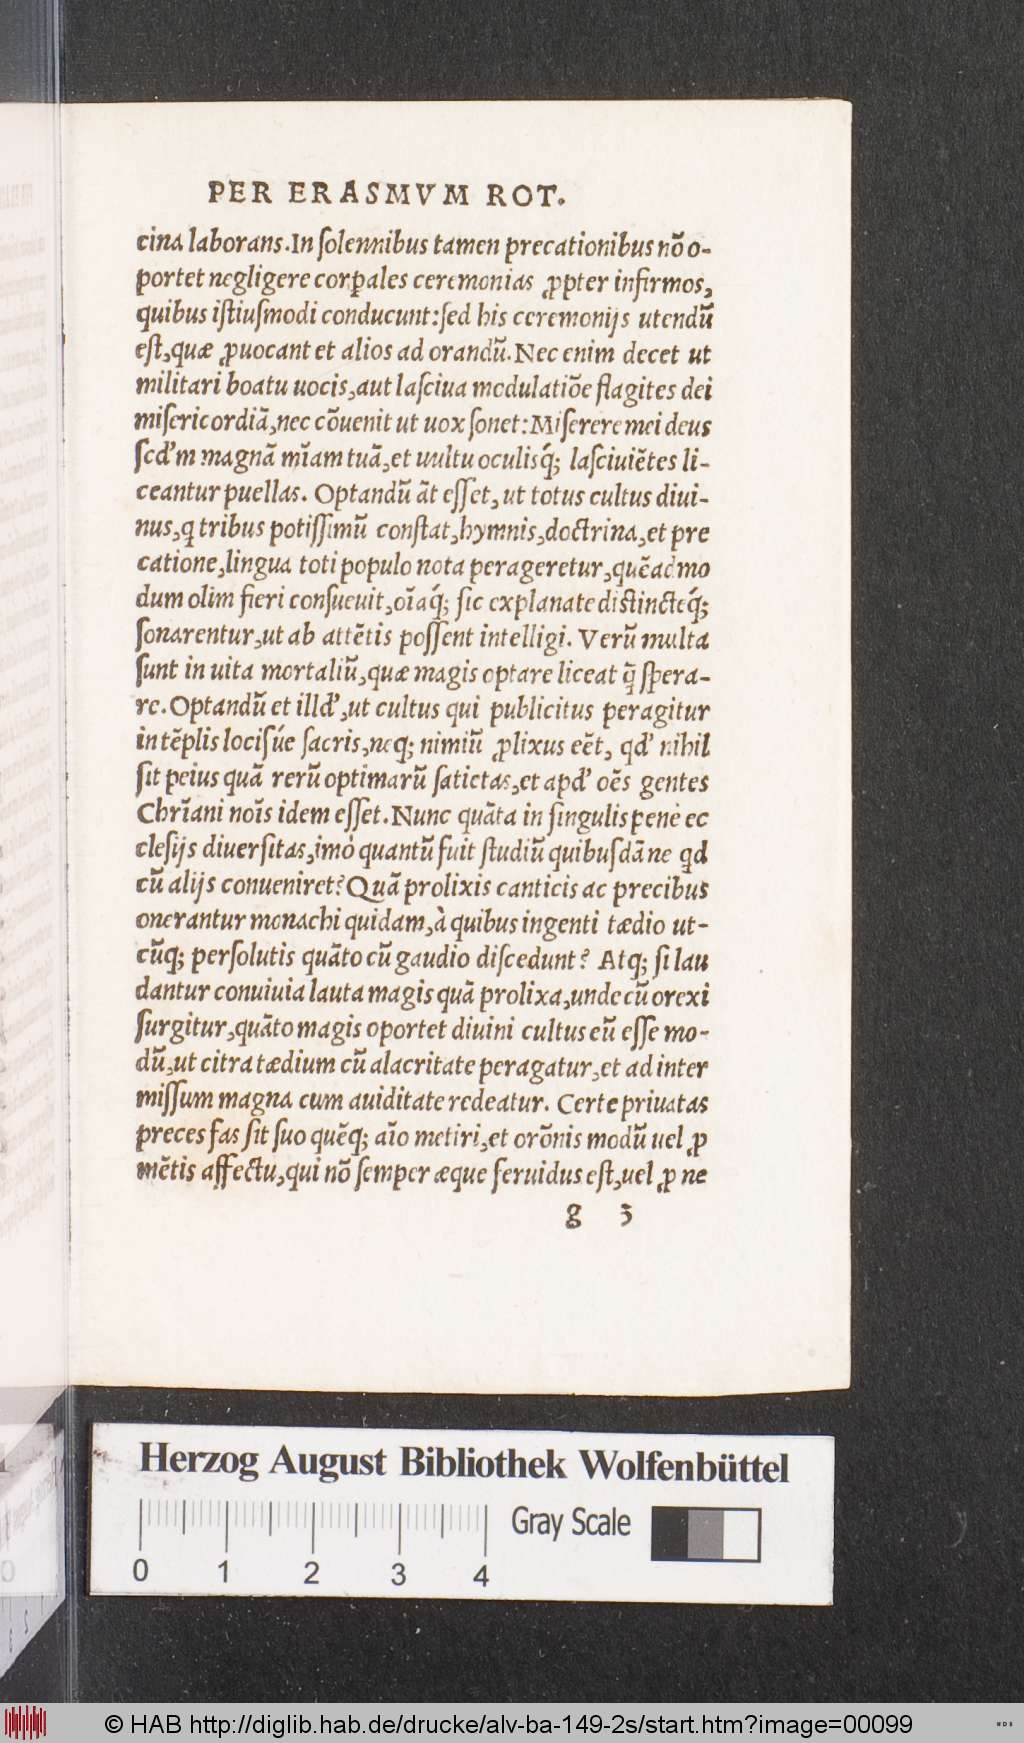 PER ERASMVM ROT.
cina laborans. In ſolennibus tamen precationibus nõ o-
portet negligere corꝑales ceremonias ꝓpter infirmos,
quibus iſtiuſmodi conducunt: ſed his ceremonijs utendũ
eſt, quæ ꝓuocant et alios ad orandũ. Nec enim decet ut
militari boatu uocis, aut laſciua modulatiõe flagites dei
miſericordiã, nec cõuenit ut uox ſonet: Miſerere mei deus
ſcd'm magnã mĩam tuã, et uultu oculisq́; laſciuiẽtes li-
ceantur puellas. Optandũ ãt eſſet, ut totus cultus diui-
nus, q tribus potiſſimũ conſtat, hymnis, doctrina, et pre
catione, lingua toti populo nota perageretur, quẽad mo
dum olim fieri conſueuit, oĩaq́; ſic explanate diſtincteq́;
ſonarentur, ut ab attẽtis poſſent intelligi. Verũ multa
ſunt in uita mortaliũ, quæ magis optare liceat q̃ ſpera-
re. Optandũ et illd', ut cultus qui publicitus peragitur
in tẽplis lociſúe ſacris, neq; nimiũ ꝓlixus eẽt, qd' nihil
ſit peius quã rerũ optimarũ ſatietas, et apd' oẽs gentes
Chrĩani noĩs idem eſſet. Nunc quãta in ſingulis pene ec
cleſijs diuerſitas, imò quantũ fuit ſtudiũ quibuſdã ne qd
cũ alijs conueniret? Quã prolixis canticis ac precibus
onerantur monachi quidam, à quibus ingenti tædio ut-
cũq; perſolutis quãto cũ gaudio diſcedunt? Atq; ſi lau
dantur conuiuia lauta magis quã prolixa, unde cũ orexi
ſurgitur, quãto magis oportet diuini cultus eũ eſſe mo-
dũ, ut citra tædium cũ alacritate peragatur, et ad inter
miſſum magna cum auiditate redeatur. Certe priuatas
preces fas ſit ſuo quẽq; aĩo metiri, et orõnis modũ uel ꝓ
mẽtis affectu, qui nõ ſemper æque feruidus eſt, uel ꝓ ne
g 3
Herzog August Bibliothek Wolfenbüttel
Gray Scale
0 1 2 3 4
© HAB http://diglib.hab.de/drucke/alv-ba-149-2s/start.htm?image=00099